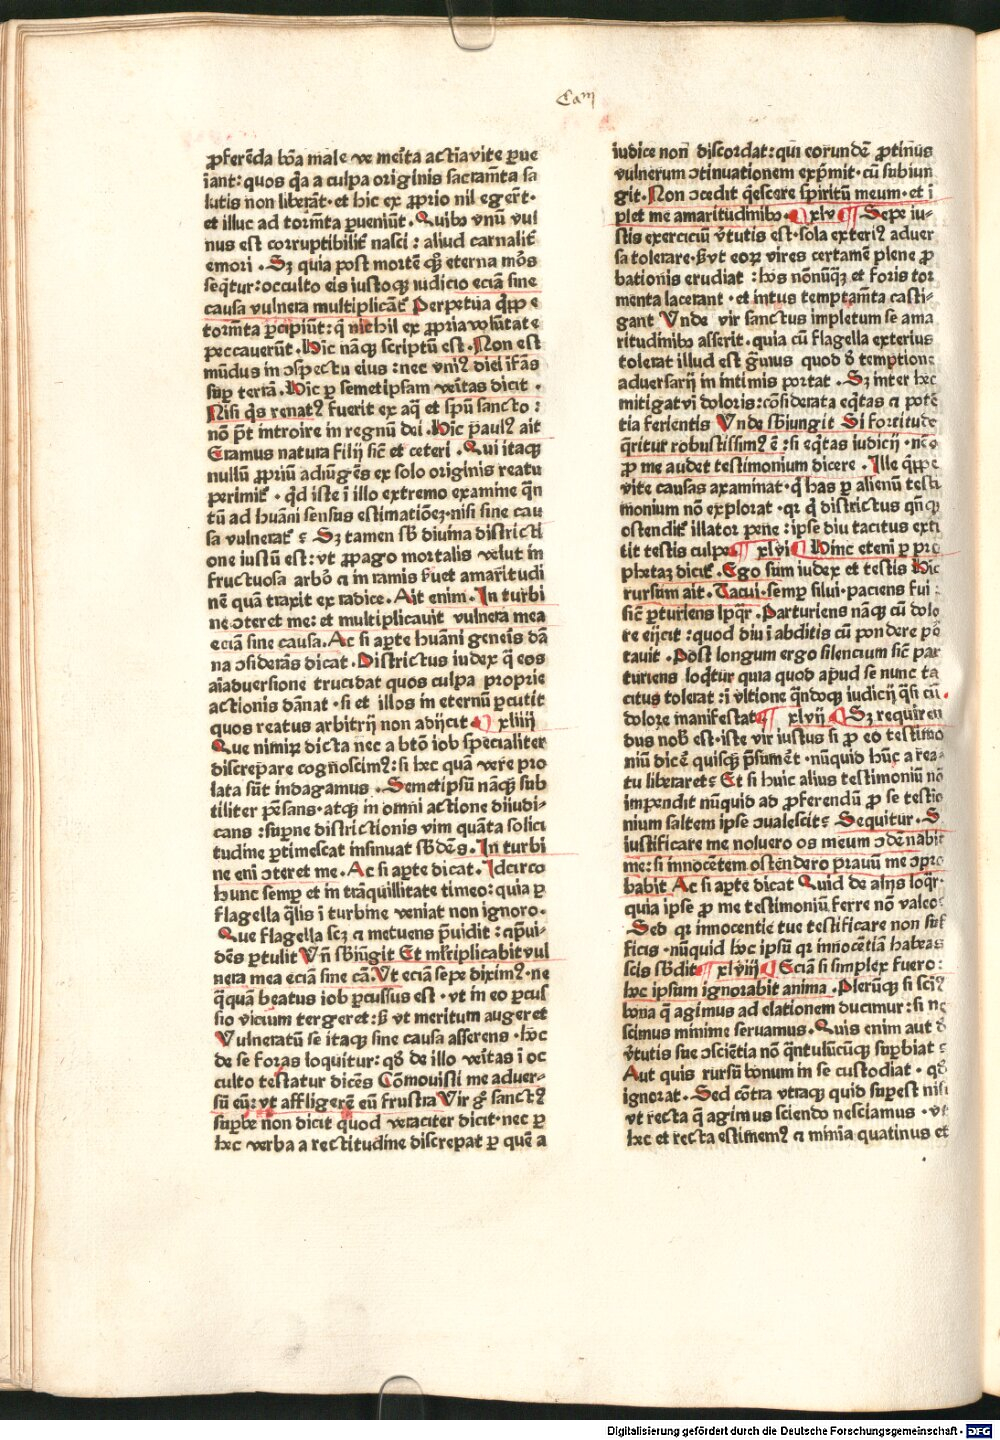 Cam
ꝓferēda bōa male ve meīta actia vite ꝑue
iant: quos q̄a a culpa originis sacram̄ta sa
lutis non liberāt· et hic ex ꝓprio nil egerūt·
et illuc ad torm̄ta ꝑueniūt. Quibꝰ vnū vul
nus est corruptibilit̄ nasci: aliud carnalit̄
emori. Sꝫ quia post mortē qꝫ eterna mōs
seq̄tur: occulto eis iustoqꝫ iudicio eciā sine
causa vulnera multiplicāt̄ Perpetua q̄ppe
torm̄ta ꝑcipiūt: q̄ niehil ex ꝓpria volūtate
peccauerūt. Hic nāqꝫ scriptū est. Non est
mūdus in ꝯspectu eius: nec vniꝰ diei īfās
suꝑ terrā. Hic ꝑ semetipsam veītas dicit.
Nisi q̄s renatꝰ fuerit ex aq̄ et spū sancto:
nō p̄t introire in regnū dei. Hic paulꝰ ait
Eramus natura filij sic̄ et ceteri. Qui itaqꝫ
nullū ꝓpriū adiūgēs ex solo originis reatu
perimit̄. q̄d iste ī illo extremo examine q̄n
tū ad huāni sensus estimatiōeꝫ·nisi sine cau
sa vulnerat̄ ꝭ Sꝫ tamen sb̄ diuina districti
one iustū est: vt ꝓpago mortalis velut in
fructuosa arbō a in ramis ẜuet amarītudi
nē quā traxit ex radice. Ait enim. In turbi
ne ꝯteret me: et multiplicauit vulnera mea
eciā sine causa. Ac si aꝑte huāni geneīs dā
na ꝯsiderās dicat. Districtus iudex q̄ eos
aīaduersione trucidat quos culpa proprie
actionis dānat· si et illos in eternū ꝑcutit
quos reatus arbitrij non adijcit. ¶ xliiij
Que nimiꝝ dicta nec a btō iob specialiter
discrepare cognoscimꝰ: si hec quā vere pro
lata sūt indagamus. Semetipsū nāqꝫ sub
tiliter pēsans· atqꝫ in omni actione diiudi-
cans: suꝑne districtionis vim quāta solici
tudine ꝑtimescat insinuat sb̄dēs. In turbi
ne enī ꝯteret me. Ac si aꝑte dicat. Idcirco
hunc semꝑ et in trāquillitate timeo: quia ꝑ
flagella q̄lis ī turbine veniat non ignoro·
Que flagella scꝫ a metuens p̄uidit: a p̄ui-
dēs ꝑtulit Vn̄ sb̄iūgit Et mltiplicabit vul
nera mea eciā sine cā. Vt eciā sepe diximꝰ· ne
q̄quā beatus iob ꝑcussus est· vt in eo ꝑcus
sio vicium tergeret: ẜ vt meritum augeret
Vulneratū se itaqꝫ sine causa asserens· hoc
de se foras loquitur: qd̄ de illo veītas ī oc
culto testatur dicēs Cōmouisti me aduer-
sū eū: vt affligerē eū frustra Vir gͦ sanctꝰ
suꝑbe non dicit quod veraciter dicit· nec ꝑ
hec verba a rectitudine discrepat ꝑ quē a
iudice non discordat: qui eorundē ꝓtinus
vulnerum ꝯtinuationem exp̄mit· cū subiun
git. Non ꝯcedit q̄escere spiritū meum· et ī
plet me amaritudinibꝰ. ¶ xlv ¶ Sepe iu-
stis exerciciū v̄tutis est· sola exteriꝰ aduer
sa tolerare. ẜ vt eoꝝ vires certamē plene ꝓ
bationis erudiat: hos nōnūqꝫ et foris tor
menta lacerant· et intus temptam̄ta casti-
gant Vnde vir sanctus impletum se ama
ritudinibꝰ asserit· quia cū flagella exterius
tolerat illud est ḡuius quod ꝺ̄ temptione
aduersarij in intimis portat. Sꝫ inter hec
mitigat vī doloris: cōsiderata eq̄tas a potē
tia ferientis Vnde sb̄iungit Si fortitudo
q̄ritur robustissimꝰ ē: si eq̄tas iudicij· nēo
ꝓ me audet testimonium dicere. Ille q̄ppe
vite causas axaminat· q̄ has ꝑ alienū testi
monium nō explorat· qr q̄ districtus qn̄qꝫ
ostendit̄ illator pene: ipse diu tacitus exti
tit testis culpe ¶ xlvi ¶ Hinc etenī ꝑ pro
phetaꝫ dicit̄. Ego sum iudex et testis Hic
rursum ait. Tacui· semꝑ silui· paciens fui:
sic̄ ꝑturiens loq̄r. Parturiens nāqꝫ cū dolo
re eijcit: quod diu ī abditis cū pondere pō
tauit. Post longum ergo silencium sic̄ par
turiens loq̄tur quia quod apud se nunc ta
citus tolerat: ī vltione qn̄doqꝫ iudicij q̄si cū
dolore manifestat ¶ xlvij ¶ Sꝫ requiren
dus nob̄ est· iste vir iustus si ꝓ eo testimo
niū dicē quisqꝫ p̄sumēt· nūquid hūc a rea-
tu liberaret ꝭ Et si huic alius testimoniū nō
impendit nūquid ad ꝓferendū ꝓ se testio
nium saltem ipse ꝯualescit ꝭ Sequitur. S
iustificare me noluero os meum ꝯdēnabit
me: si innocētem ostēdero prauū me ꝯpro
babit Ac si aꝑte dicat Quid de alijs loq̄r·
quia ipse ꝓ me testimoniū ferre nō valeo ꝭ
Sed qr innocentie tue testificare non suf
ficis· nūquid hoc ipsū qr innocētiā habeas
scis sb̄dit ¶ xlviij ¶ Eciā si simplex fuero:
hoc ipsum ignorabit anima. Plerūqꝫ si sciꝰ
bona q̄ agimus ad elationem ducimur: si ne
scimus minime seruamus. Quis enim aut ꝺ̄
v̄tutis sue ꝯsciētia nō q̄ntulūcūqꝫ suꝑbiat ꝭ
Aut quis rursū bonum in se custodiat· qd̄
ignorat. Sed cōtra vtraqꝫ quid suꝑest nisi
vt recta q̄ agimus sciendo nesciamus· vt
hec et recta estimemꝰ a minīa quatinus et
Digitalisierung gefördert durch die Deutsche Forschungsgemeinschaft - DFG